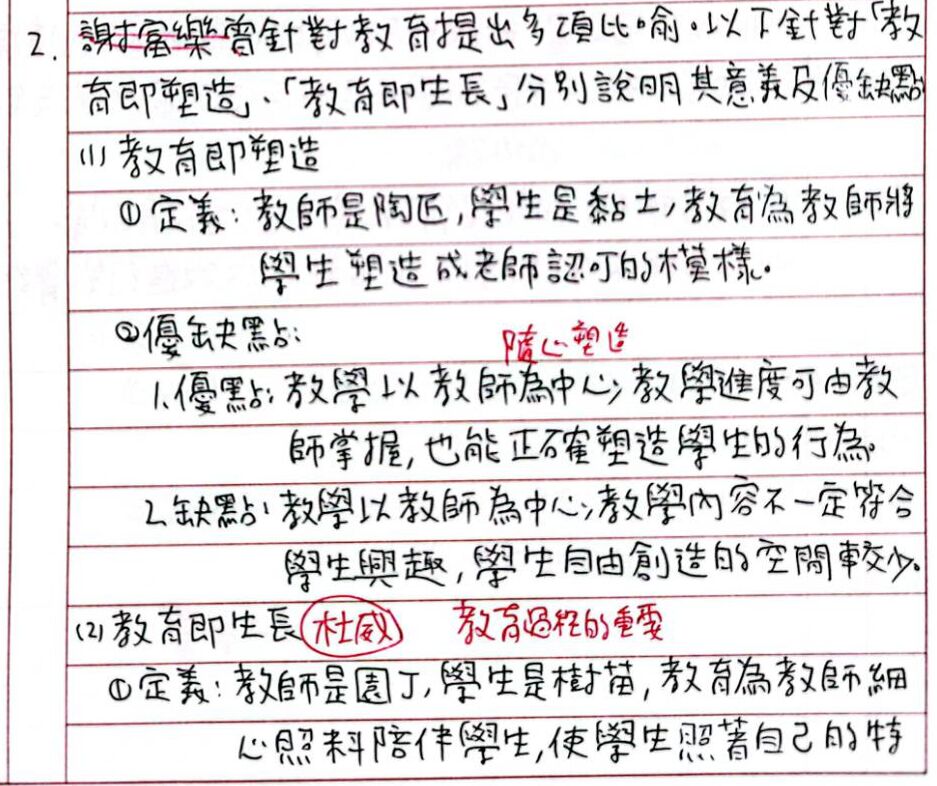 2. 謝富樂曾針對教育提出多項比喻。以下針對「教
育即塑造」、「教育即生長」分別說明其意義及優缺點
(1) 教育即塑造
① 定義：教師是陶匠，學生是黏土，教育為教師將
學生塑造成老師認可的模樣。
② 優缺點：
隨心塑造
1. 優點：教學以教師為中心，教學進度可由教
師掌握，也能正確塑造學生的行為。
2. 缺點：教學以教師為中心，教學內容不一定符合
學生興趣，學生自由創造的空間較少。
(2) 教育即生長 杜威 教育過程的重要
① 定義：教師是園丁，學生是樹苗，教育為教師細
心照料陪伴學生，使學生照著自己的特